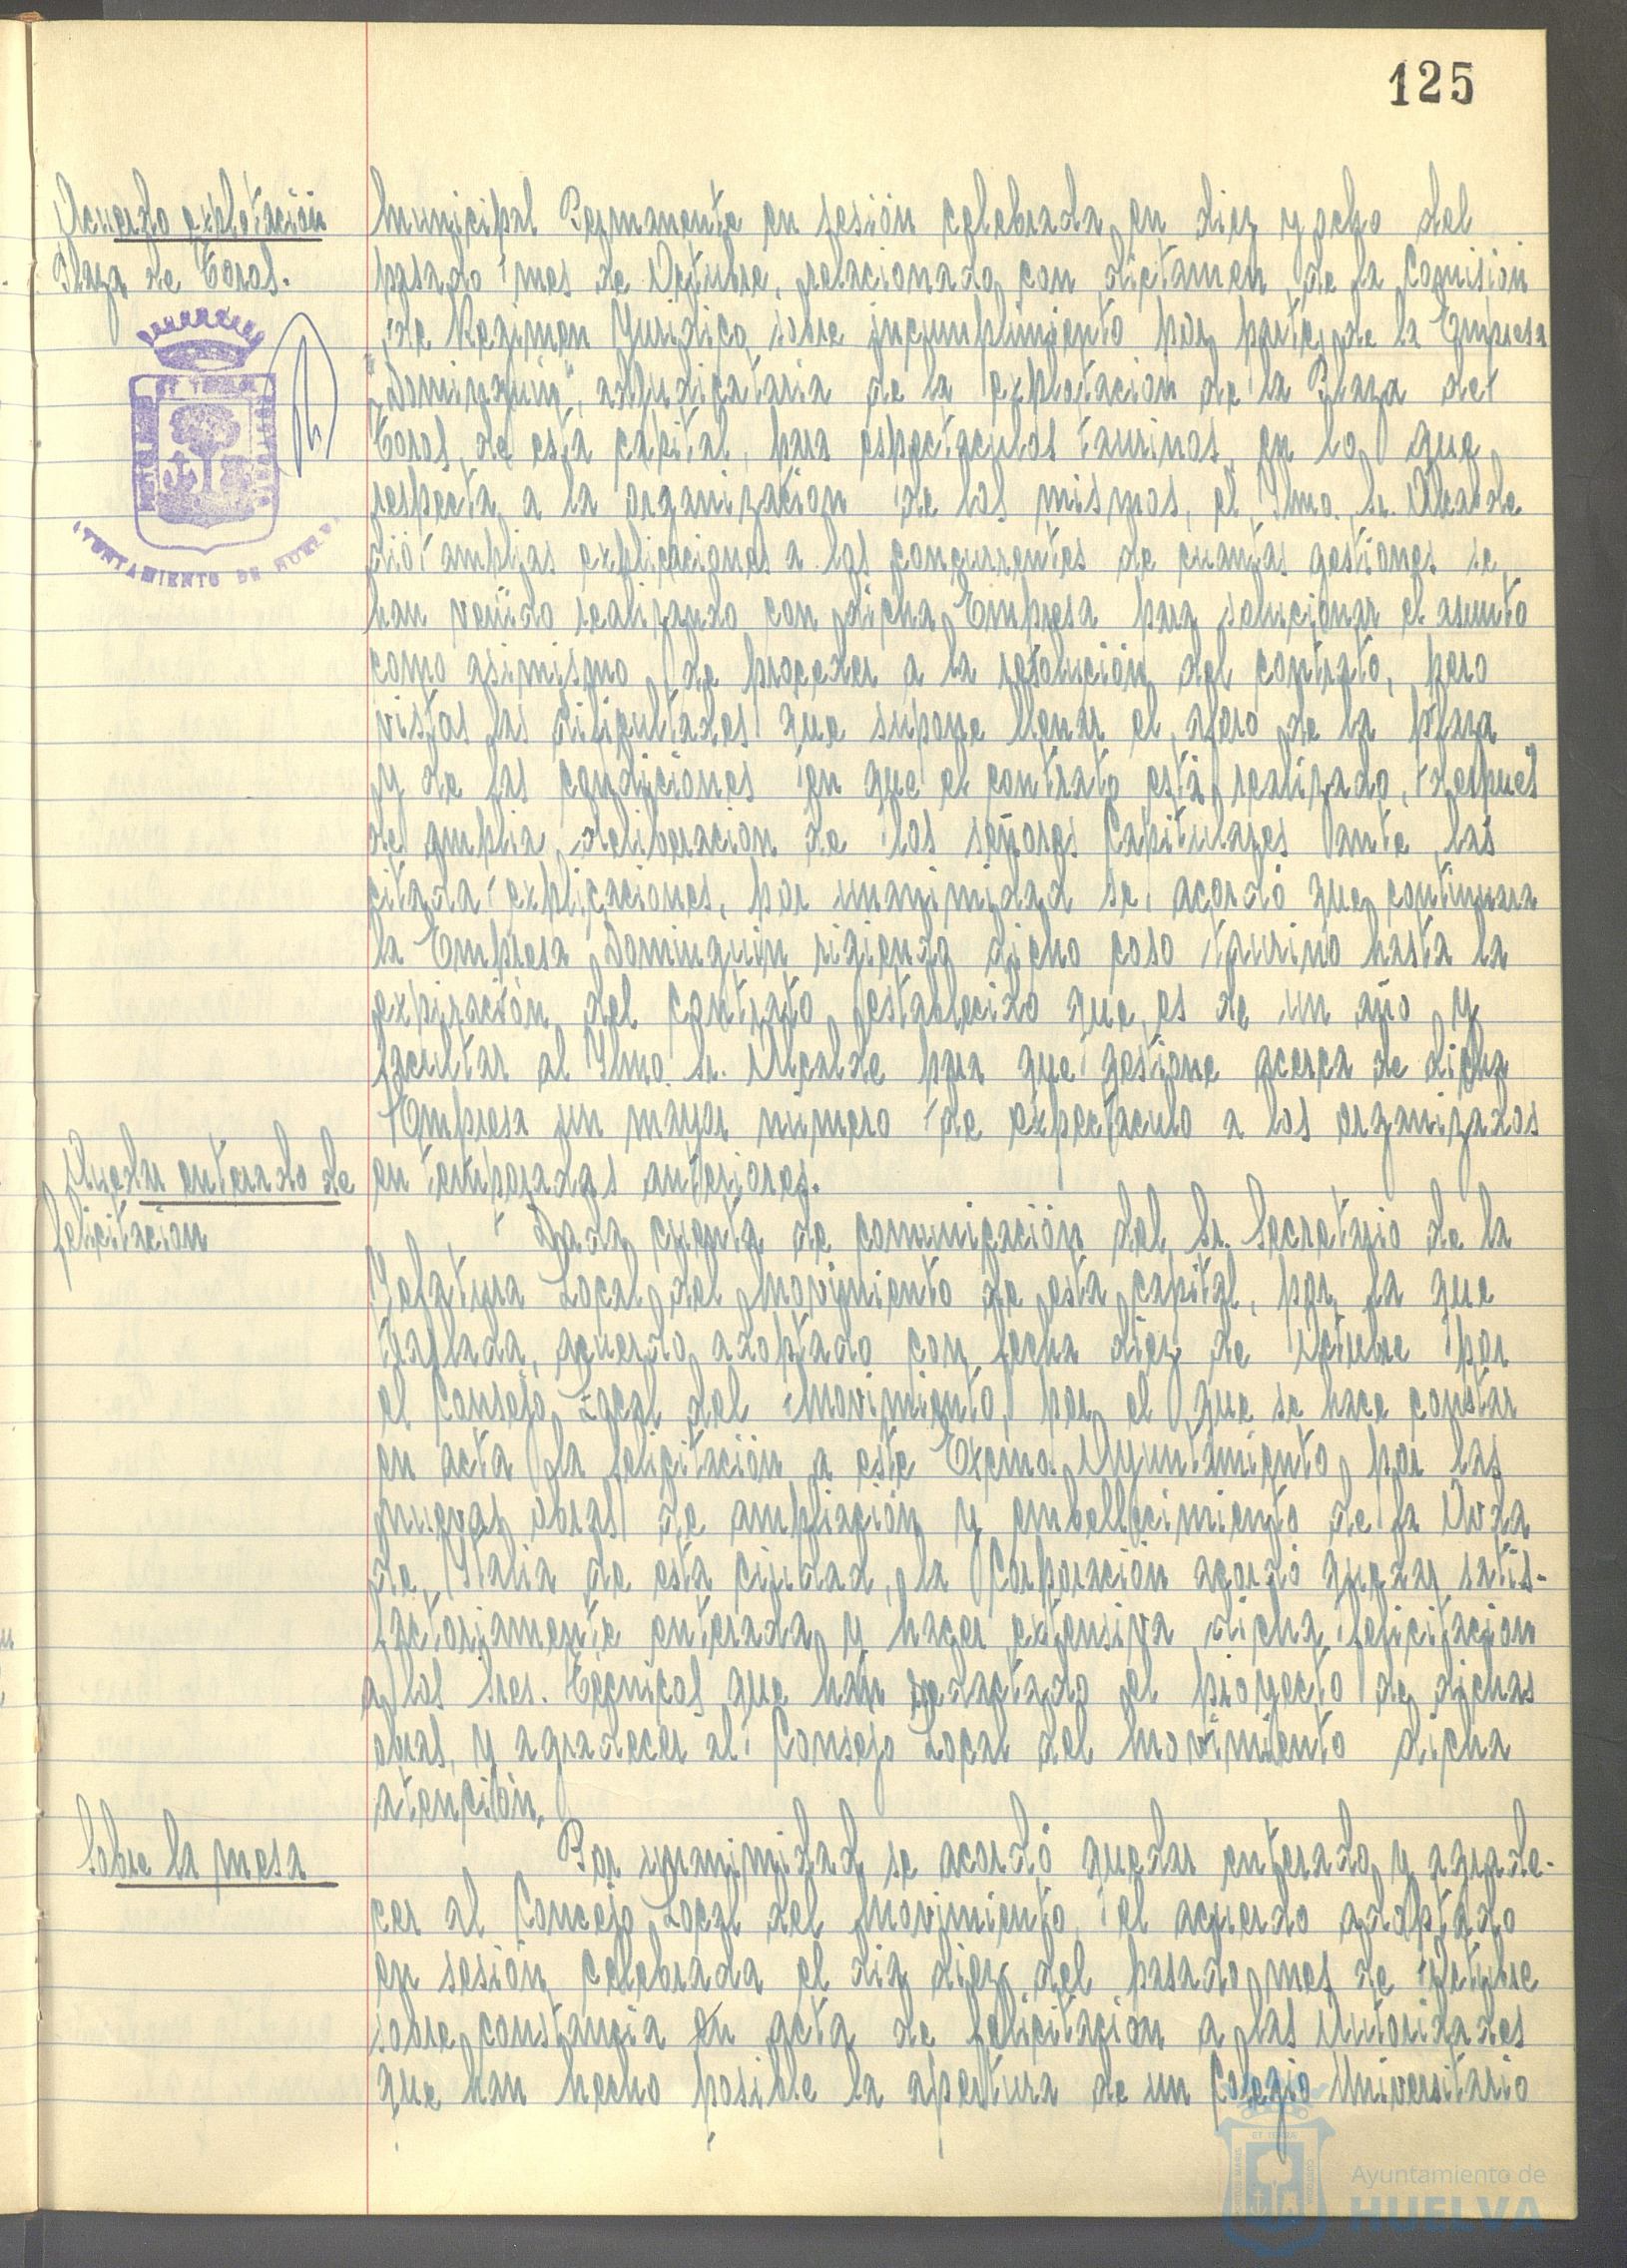 125
Acuerdo explotación
Plaza de Toros.
Municipal Permanente en sesión celebrada en diez y ocho del
pasado mes de Octubre, relacionado con dictamen de la Comisión
de Regimen Juridico sobre incumplimiento por parte de la Empresa
"Dominguin", adjudicataria de la explotación de la Plaza de
Toros de esta capital, para espectaculos taurinos, en lo que
respecta a la organización de los mismos, el Ilmo. Sr. Alcalde
dió amplias explicaciones a los concurrentes de cuantas gestiones se
han venido realizando con dicha Empresa para solucionar el asunto
como asimismo de proceder a la resolución del contrato, pero
vistas las dificultades que supone llenar el aforo de la plaza
y de las condiciones en que el contrato está realizado, despues
de amplia deliberacion de los señores Capitulares ante las
citada explicaciones, por unanimidad se acordó que continuara
la Empresa Dominguin rigiendo dicho coso taurino hasta la
expiración del contrato establecido que es de un año y
facultar al Ilmo. Sr. Alcalde para que gestione acerca de dicha
Empresa un mayor número de espectaculo a los organizados
en temporadas anteriores.
Quedar enterado de
felicitacion
Dada cuenta de comunicación del Sr. Secretario de la
Jefatura Local del Movimiento de esta capital, por la que
traslada, acuerdo adoptado con fecha diez de Octubre por
el Consejo Local del Movimiento, por el que se hace constar
en acta la felicitación a este Excmo. Ayuntamiento por las
nuevas obras de ampliación y embellecimiento de la Avda
de Italia de esta ciudad, la Corporación acordó quedar satis-
factoriamente enterada y hacer extensiva dicha felicitacion
a los Sres. Técnicos que han redactado el proyecto de dichas
obras, y agradecer al Consejo Local del Movimiento dicha
atención.
Sobre la mesa
Por unanimidad se acordó quedar enterado y agrade-
cer al Concejo Local del Movimiento, el acuerdo adoptado
en sesión celebrada el dia diez del pasado mes de Octubre
sobre constancia en acta de felicitacion a las Autoridades
que han hecho posible la apertura de un Colegio Universitario
AYUNTAMIENTO DE HUELVA
Ayuntamiento de
HUELVA